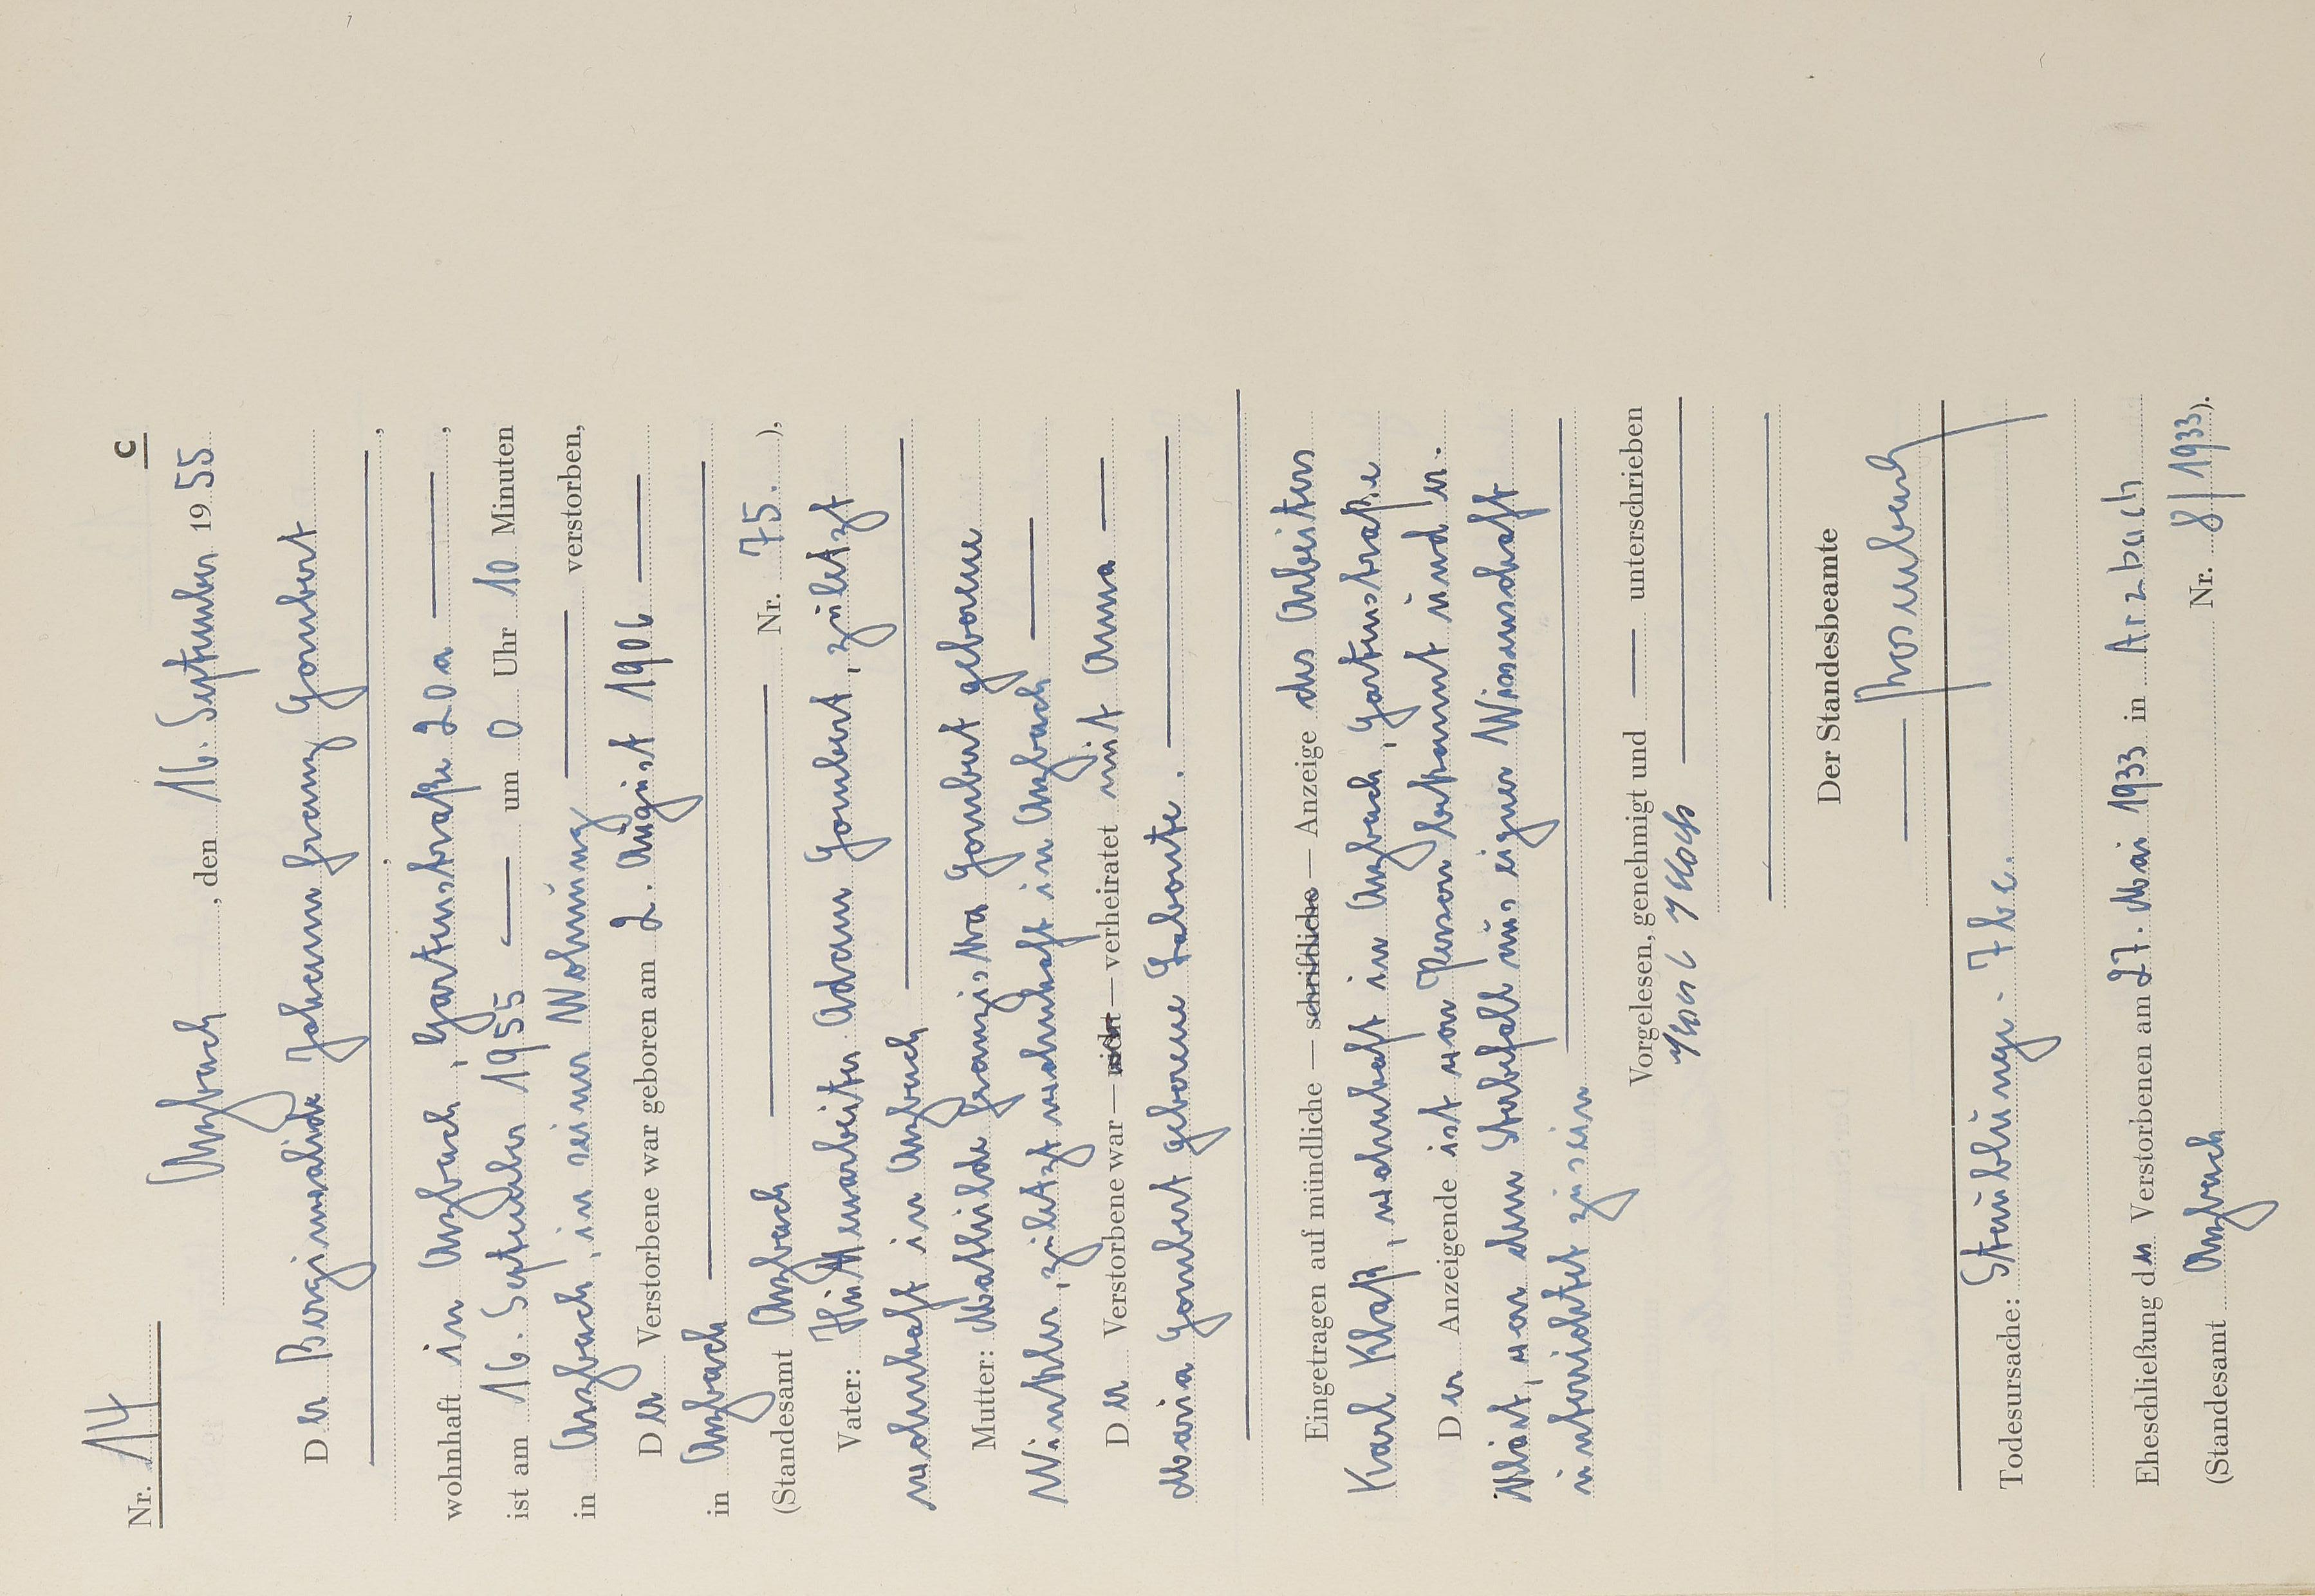 C
Nr. 14
Arzbach, den 16. September 1955
Der Berginvalide Johann Franz Gombert
wohnhaft in Arzbach, Gartenstraße 20a,
ist am 16. September 1955 um 0 Uhr 10 Minuten
in Arzbach, in seiner Wohnung verstorben,
Der Verstorbene war geboren am 2. August 1906
in Arzbach
(Standesamt Arzbach Nr. 75.),
Vater: Hüttenarbeiter Adam Gombert, zuletzt
wohnhaft in Arzbach
Mutter: Mathilde Franziska Gombert geborene
Winkler, zuletzt wohnhaft in Arzbach
Der Verstorbene war — nicht — verheiratet mit Anna
Maria Gombert geborene Labonte.
Eingetragen auf mündliche — schriftliche — Anzeige des Arbeiters
Karl Klaß, wohnhaft in Arzbach, Gartenstraße
Der Anzeigende ist von Person bekannt und er.
klärt, von dem Sterbefall aus eigner Wissenschaft
unterrichtet zu sein
Vorgelesen, genehmigt und unterschrieben
Karl Klaß
Der Standesbeamte
Todesursache: Staublunge. Tbc.
Eheschließung des Verstorbenen am 27. Mai 1933 in Arzbach
(Standesamt Arzbach Nr. 8/1933).